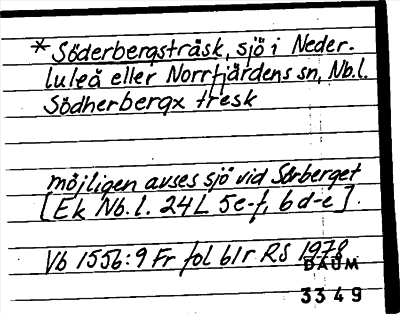 * Söderbergsträsk, sjö i Neder-
luleå eller Norrfjärdens sn, Nb.l.
Södherbergx tresk
möjligen avses sjö vid Sörberget
[Ek Nb.l. 24L 5e-f, 6d-e].
Vb 1556:9 Fr fol blr RS 1978
DAUM
3349